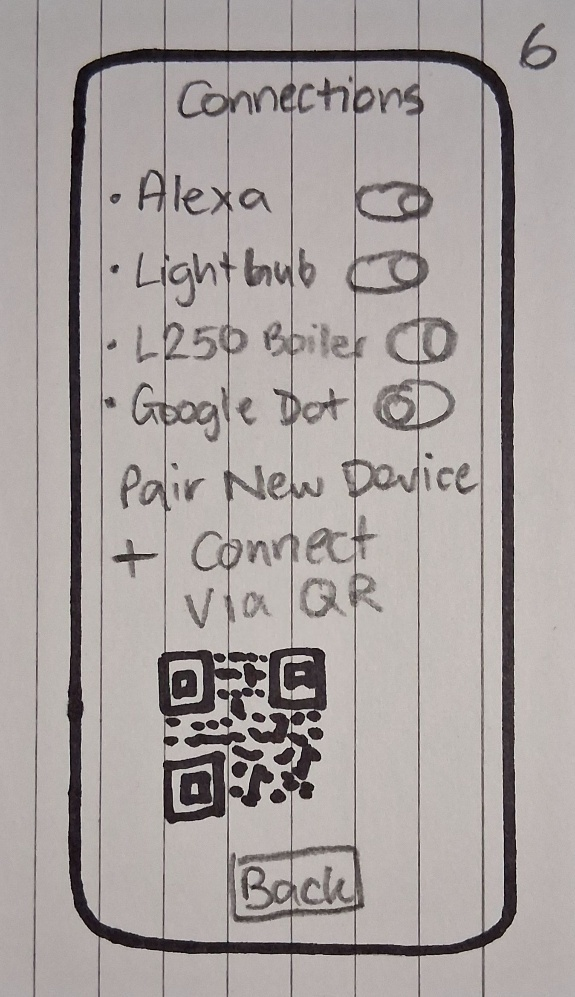 6
Connections
• Alexa
• Lightbub
• L250 Boiler
• Google Dot
Pair New Device
+ Connect
Via QR
Back